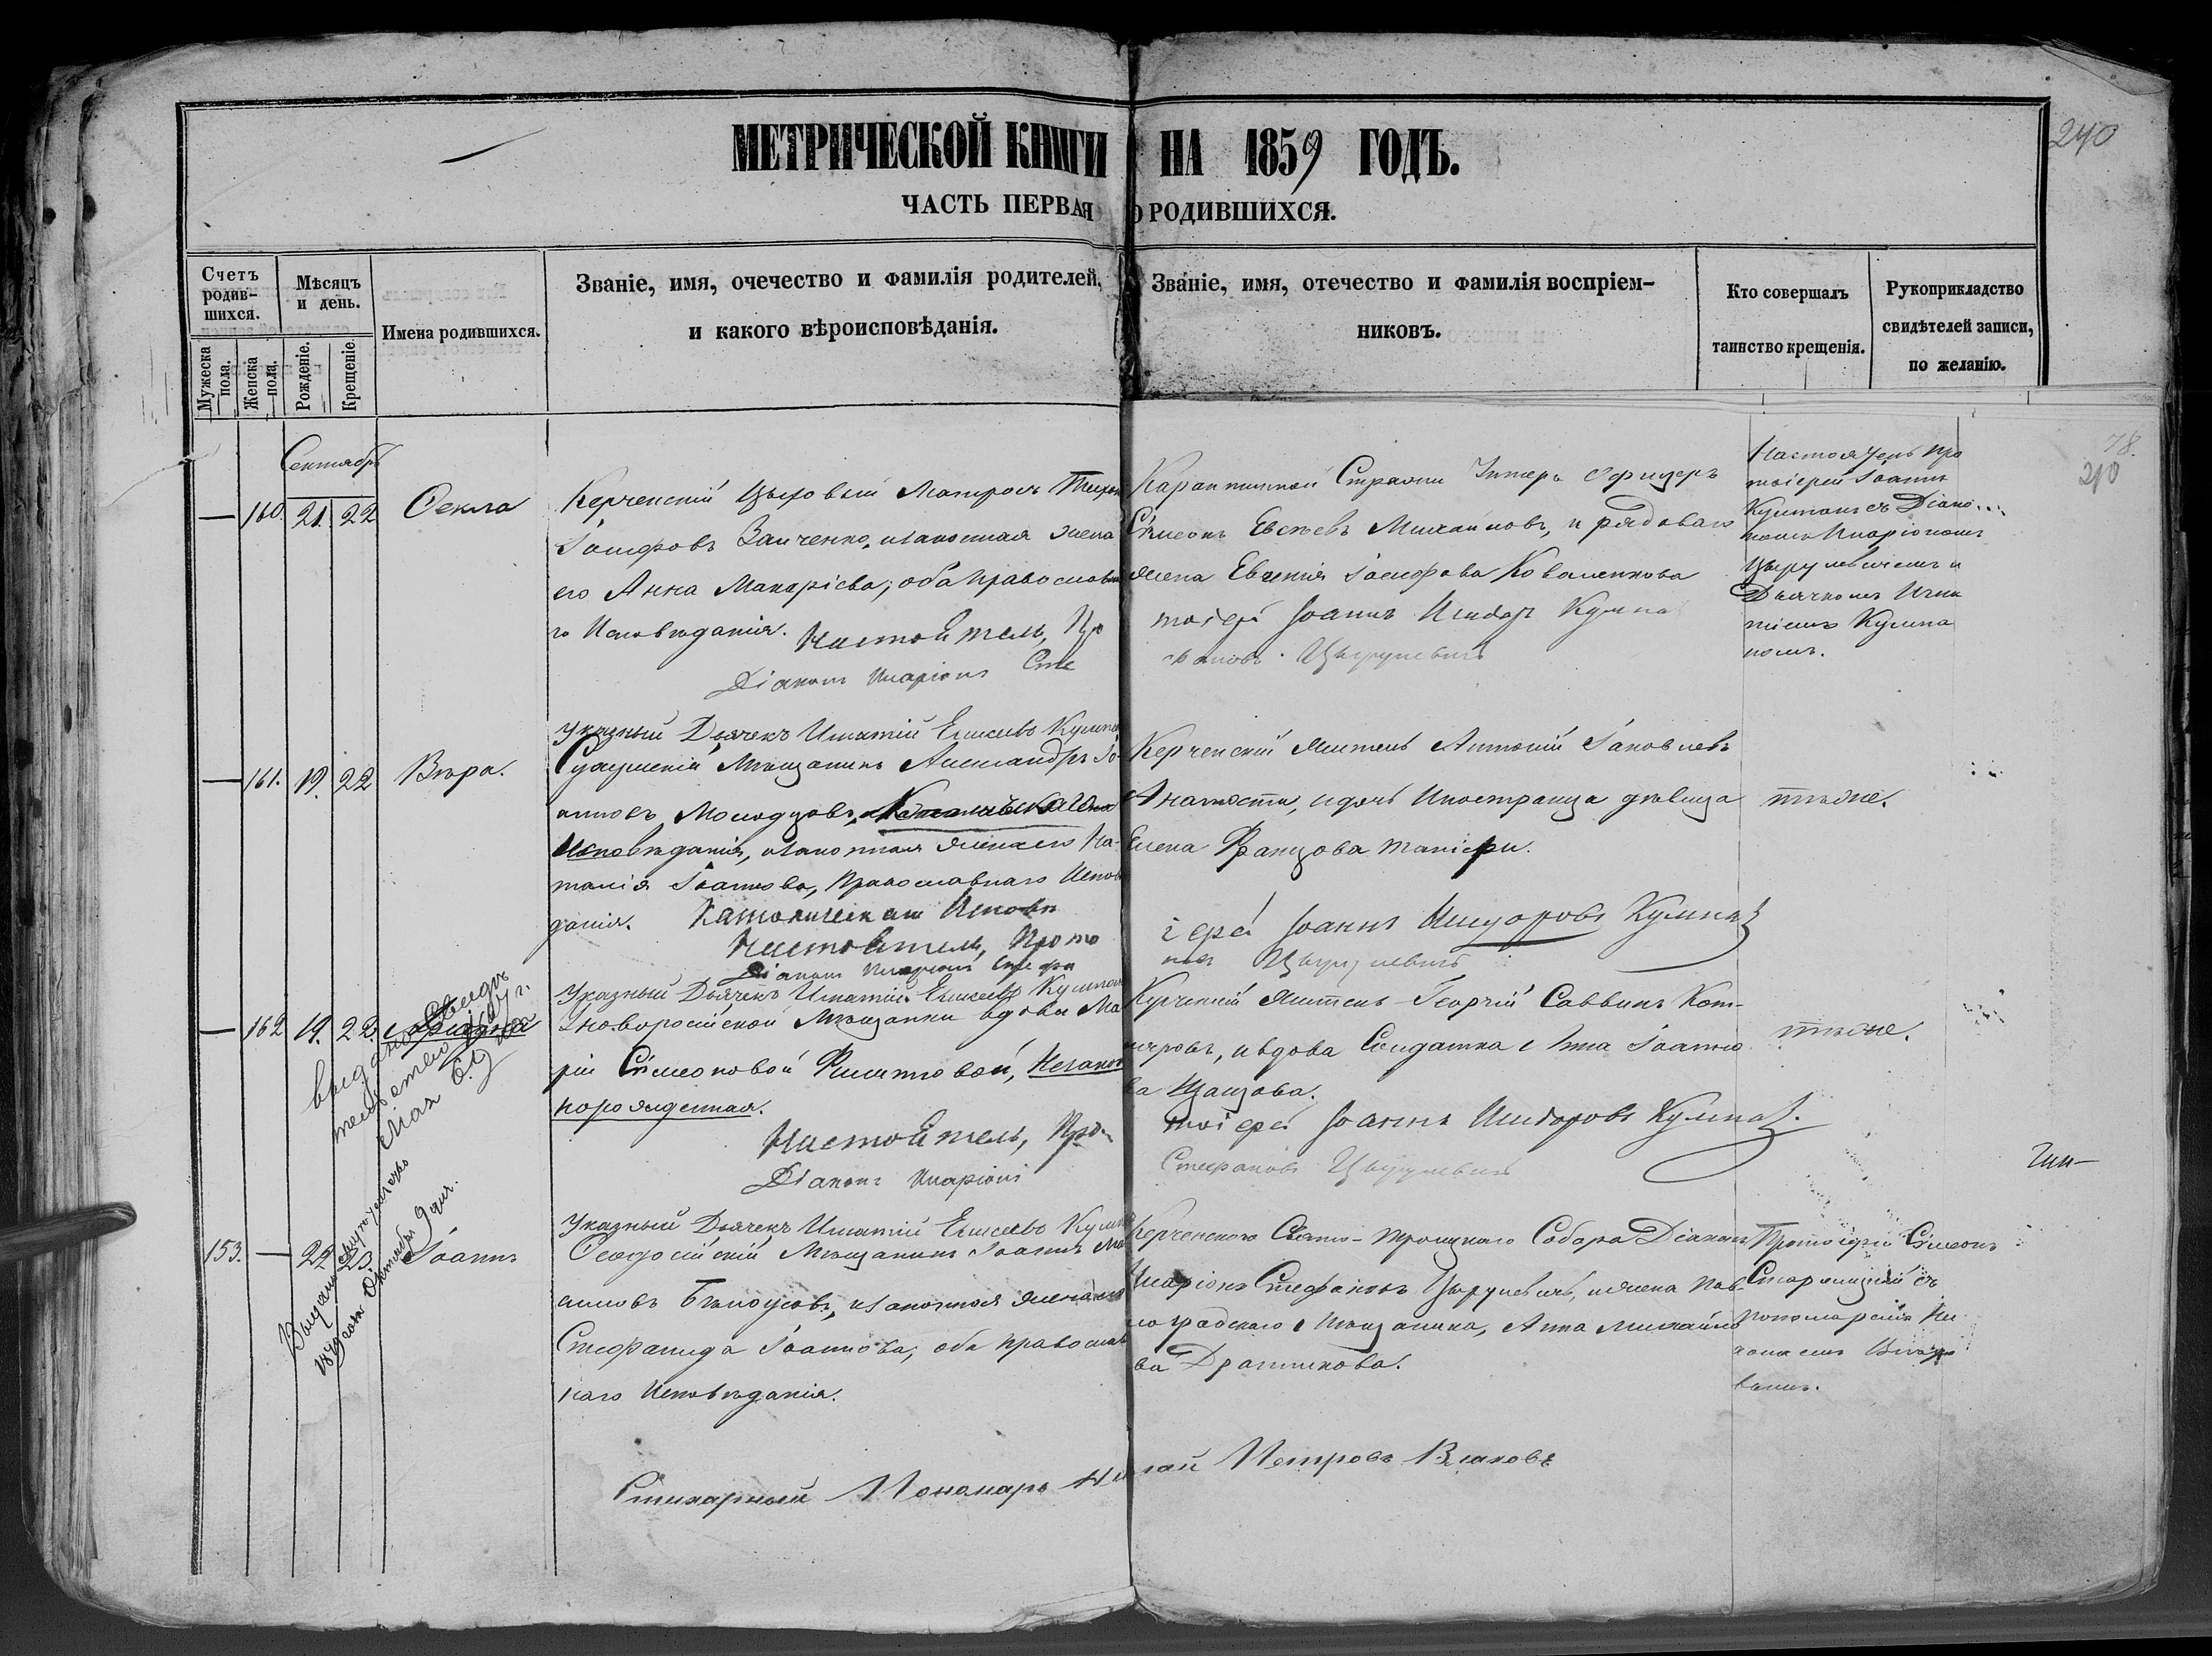 МЕТРИЧЕСКОЙ КНИГИ НА 1859 ГОДЪ.
240
ЧАСТЬ ПЕРВАЯ О РОДИВШИХСЯ.
Счетъ родив-шихся.
Мужеска пола.
Женска пола.
Мѣсяцъ и день.
Рожденіе.
Крещеніе.
Имена родившихся.
Званіе, имя, очечество и фамилія родителей,
и какого вѣроисповѣданія.
Званіе, имя, отечество и фамилія воспріем-
никовъ.
Кто совершалъ
таинство крещенія.
Рукоприкладство
свидѣтелей записи,
по желанію.
78.
240
Сентябрь
— 160. 21. 22 Ѳекла
Керченскій Цеховый Матросъ Тихонъ
Іосифовъ Заиченко, и законная жена
его Анна Макаріева; оба православна
го Исповѣданія.
Настоятель, Про
Діаконъ Иларіонъ Сте
Карантинной Стражи Унтеръ Офицеръ
Сѵмеонъ Михайловъ, и рядоваго
жена Евгенія Іосифова Коваленкова
тоіерей Іоаннъ Кумпа
фановъ Цыруневичъ
Настоятель про
тоіерей Іоаннъ
Кумпанъ съ Діако
номъ Иларіономъ
Цыруневичемъ и
Дьячкомъ Игна
тіемъ Кумпа
номъ.
Указный Дьячекъ Игнатій Елисеевъ Кумпанъ
— 161. 19. 22 Вѣра.
Мѣщанинъ Александръ Іо-
анновъ Молодцовъ,
Исповѣданія, и законная жена его На-
талія Іоаннова, Православнаго Исповѣ
данія. Католическаго Исповѣ
Настоятель, Прото
Діаконъ Иларіонъ Стефа
Керченскій житель Антоній Іаковлевъ
и дочь Иностранца дѣвица
Елена Францова
іерей Іоаннъ Исидоровъ Кумпанъ
новъ Цыруневичъ
тѣже.
Указный Дьячекъ Игнатій Елисеевъ Кумпанъ
— 162 19. 22.
Новоросійской Мѣщанки вдовы Ма
ріи Сѵмеоновой Филиповой, Незакон
норожденная.
Настоятель, Про-
Діаконъ Иларіонъ
Керченскій житель Георгій Саввинъ Кот-
ляровъ, и вдова Солдатка Анна Іоанно
ва
тоіерей Іоаннъ Исидоровъ Кумпанъ.
Стефановъ Цыруневичъ
тѣже.
Указный Дьячекъ Игнатій Елисеевъ Кумпанъ
153. — 22 23. Іоаннъ
Ѳеодосійскій Мѣщанинъ Іоаннъ
анновъ Бѣлоусовъ, и законная жена его
Стефанида Іоаннова; оба православ
наго Исповѣданія.
Керченскаго Свято-Троицкаго Собора Діаконъ
Иларіонъ Стефановъ Цыруневичъ, и жена Пав-
лоградскаго Мѣщанина, Анна Михайло
ва Дратникова.
Протоіерей Сѵмеонъ
съ
пономаремъ Ни
колаемъ
Стихарный Пономарь Николай Петровъ Власовъ